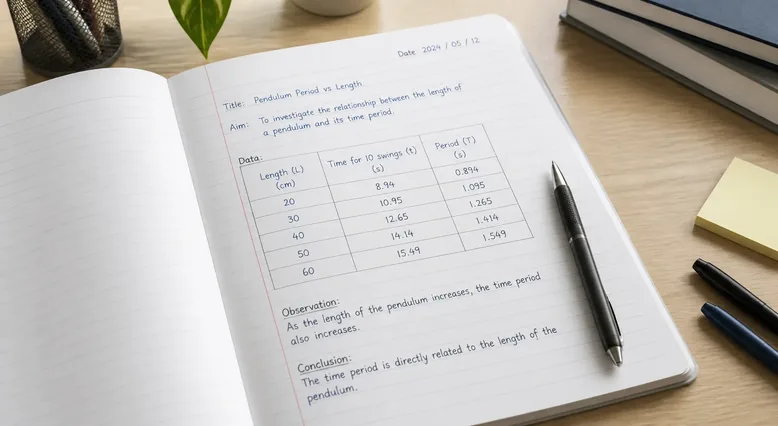 Date 2024 / 05 / 12
Title: Pendulum Period vs Length
Aim: To investigate the relationship between the length of
a pendulum and its time period.
Data:
Length (L) (cm) Time for 10 swings (t) (s) Period (T) (s)
20 8.94 0.894
30 10.95 1.095
40 12.65 1.265
50 14.14 1.414
60 15.49 1.549
Observation:
As the length of the pendulum increases, the time period
also increases.
Conclusion:
The time period is directly related to the length of the
pendulum.